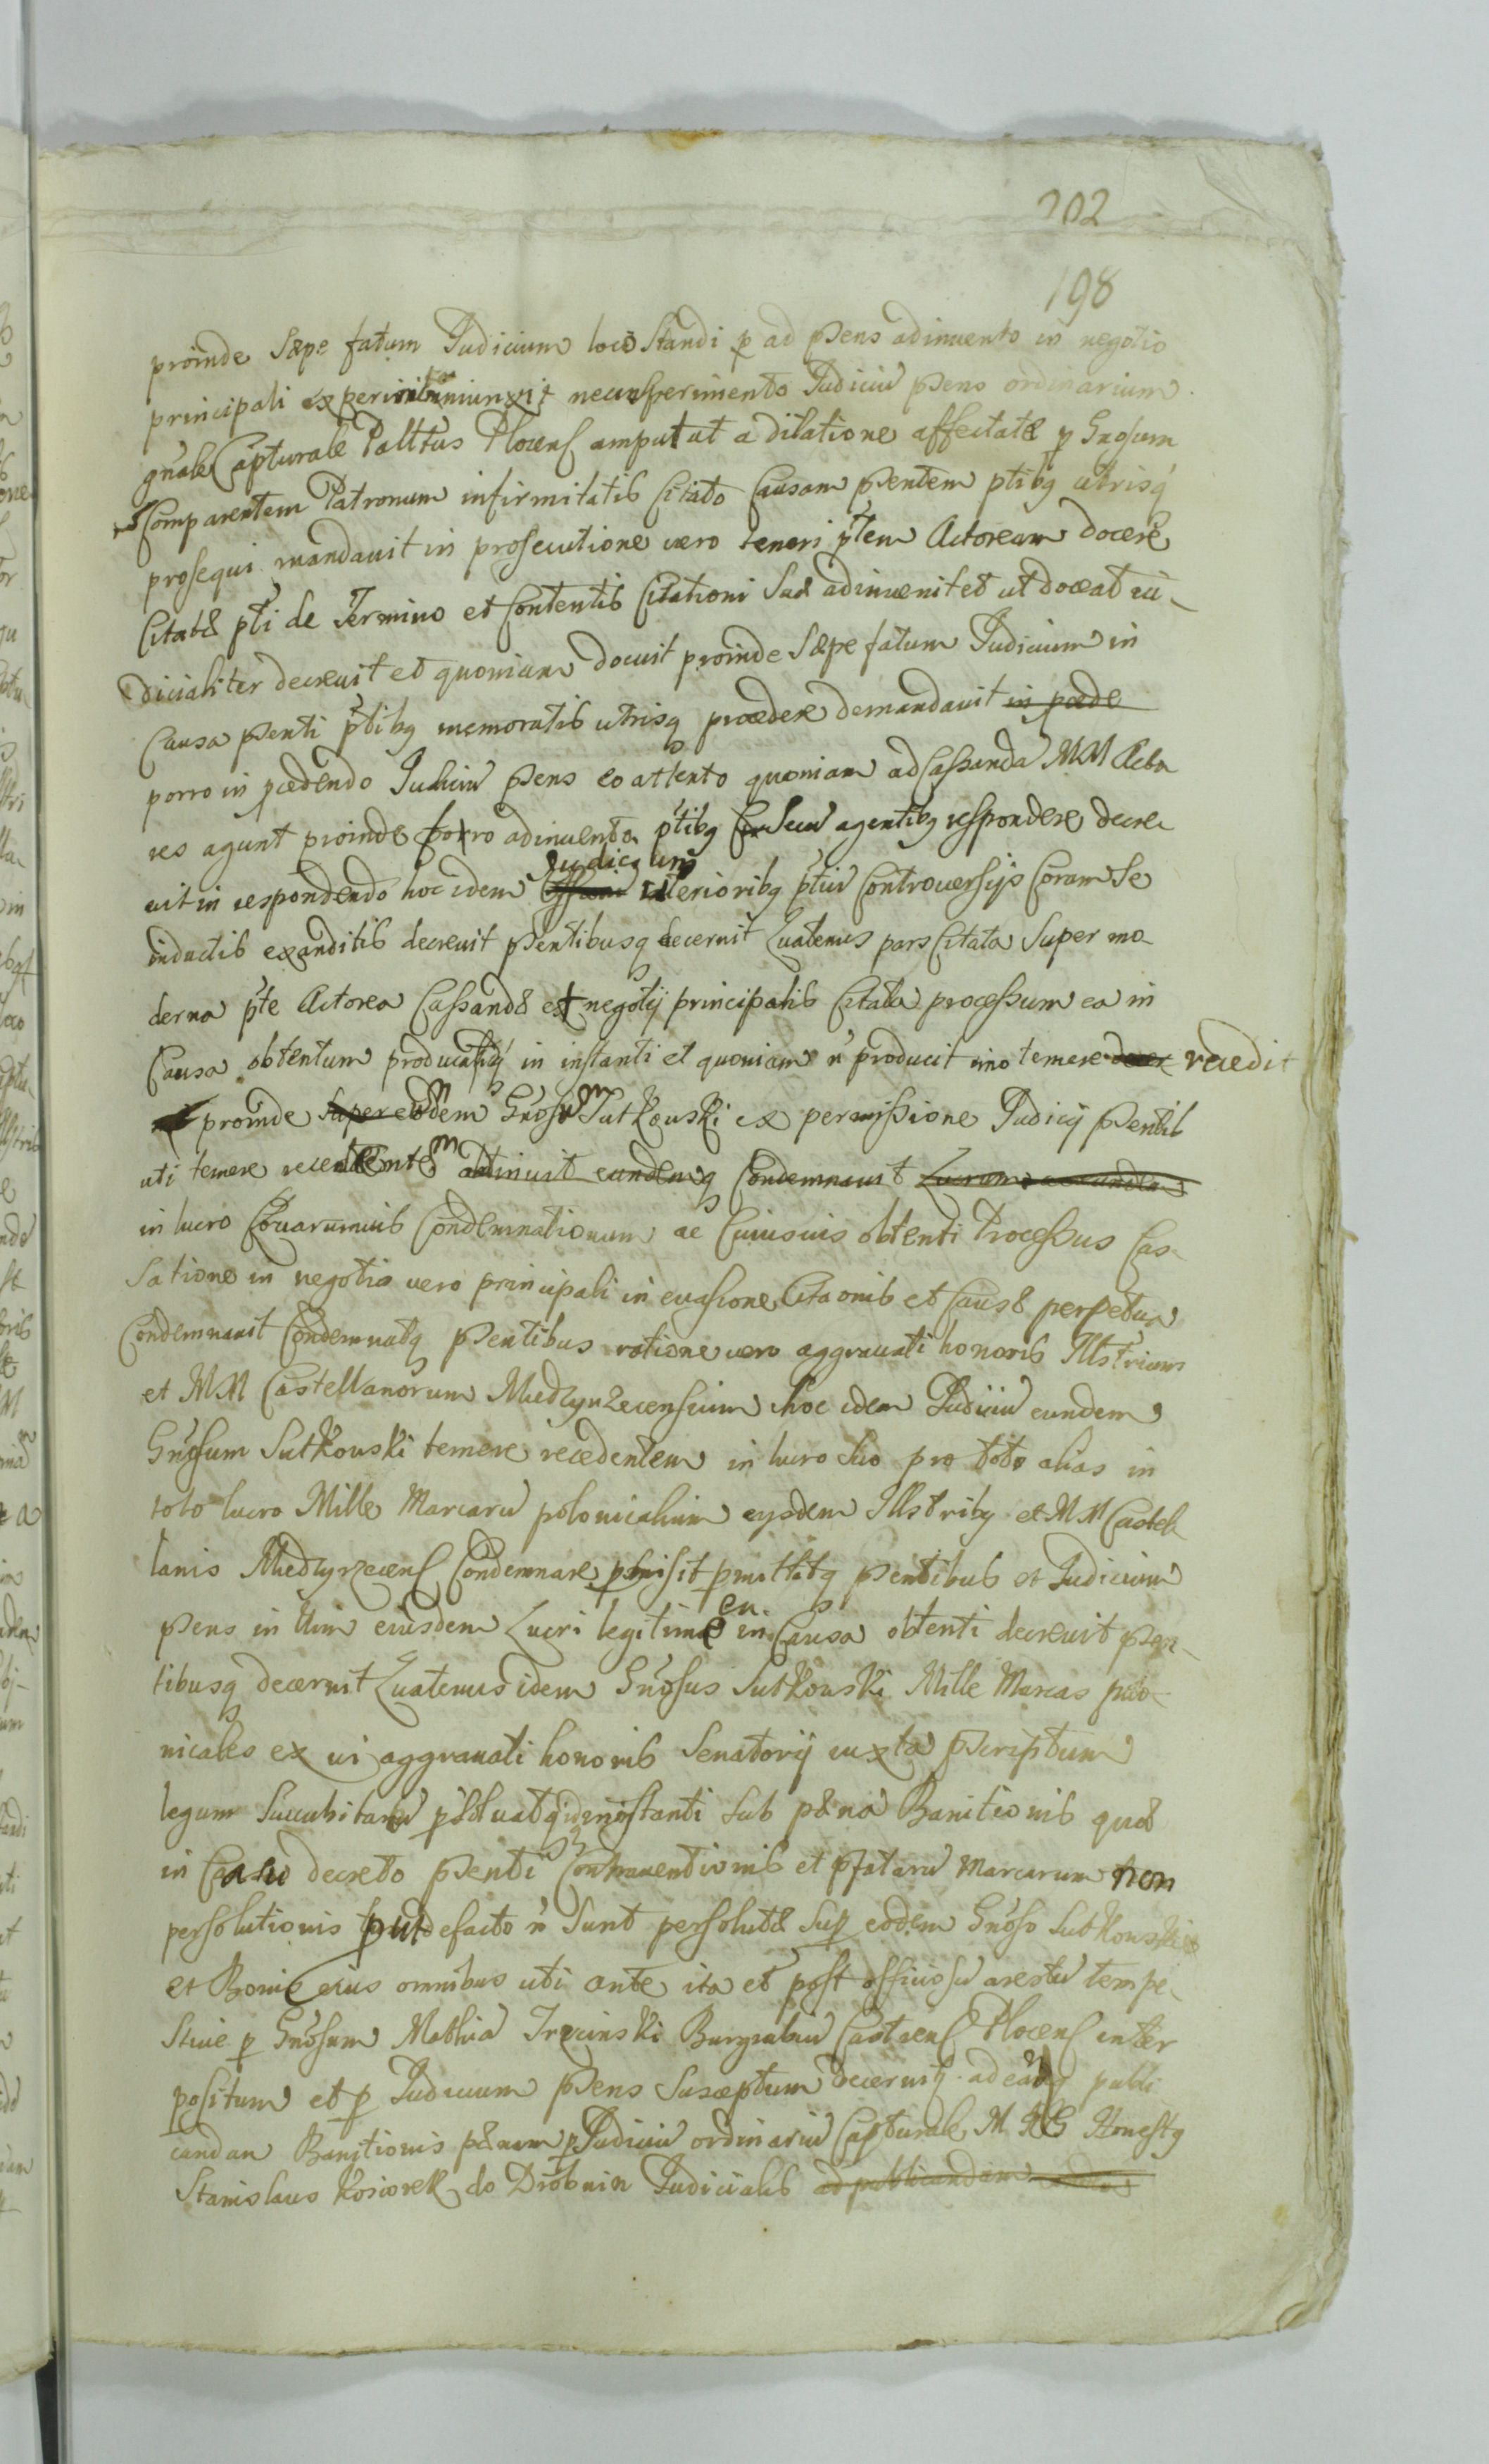 202
198
proinde Sæpe fatum Judicium loco Standi p ad psens adinuento in negotio
principali experiri iniunxit nec experimento Judiciu psens ordinarium
gnale Capturale Palttus Plocens amputat a dilatione affectatæ p Gnosum
Comparentem Patronum infirmitatis Citato Causam psentem ptibq utrisq
prosequi mandauit in prosecutione vero teneri ptem Actoream docere
Citatæ pti de Termino et Contentis Citationi Suæ adinuenit et ut doceat iu-
dicialiter decreuit et quoniam docuit proinde Sæpe fatum Judicium in
Causa psenti ptibq memoratis utrisq procedere demandauit in pcede
porro in pcedendo Judiciu psens eo attento quoniam ad Cassanda MM Acto
res agunt proinde porro adinuento ptibq Secu agentibq respondere decre
uit in respondendo hoc idem Judicium ulterioribq ptiu Controuersijs Coram Se
inductis exauditis decreuit psentibusq decernit Quatenus pars Citata Super mo-
derna pte Actorea Cassandæ et negotij principalis Citata processum ea in
Causa obtentum producat in instanti et quoniam n producit imo temere recedit
proinde Super eodem Gnosum Sutkouski ex permissione Judicij psentis
uti temere recedentem obtinuit eundemq Condemnauit
in lucro Condemnationum ac Cuiusuis obtenti Processus Cas-
Satione in negotio vero principali in euasione Citaonis et Causæ perpetua
Condemnauit Condemnatq psentibus ratione vero aggrauati honoris Illstrium
et MM Castellanorum Miedzyrzecensium hoc idem Judiciu eundem
Gnosum Sutkouski temere recedentem in lucro Suo pro toto alias in
toto lucro Mille Marcaru polonicalium eysdem Illstribq et MM Castel
lanis Miedzyrzecens Condemnare pmisit pmittitq psentibus et Judicium
psens in Vim eiusdem Lucri legitime ea in Causa obtenti decreuit psen-
tibusq decernit Quatenus idem Gnosus Sutkouski Mille Marcas polo-
nicales ex ui aggrauati honoris Senatorij iuxta pscriptum
legum Succubitaru psoluat idq in instanti Sub pæna Banitionis quæ
in Casu decreto psenti Contrauentionis et pfataru Marcarum non
persolutionis put defacto n Sunt persolutæ Sup eodem Gnoso Sutkouski
et Bonis eius omnibus uti ante ita et post officiosu arestu tempe-
Stiue p Gnosum Mathia Trzcinski Burgrabiu Castrens Plocens inter
positum et p Judicium psens Susceptum decernit. ad eamq publi
candam Banitionis pænam p Judiciu ordinariu Capturale M G Honestq
Stanislaus Kosiorek do Drobnin Judicialis ad publicandam